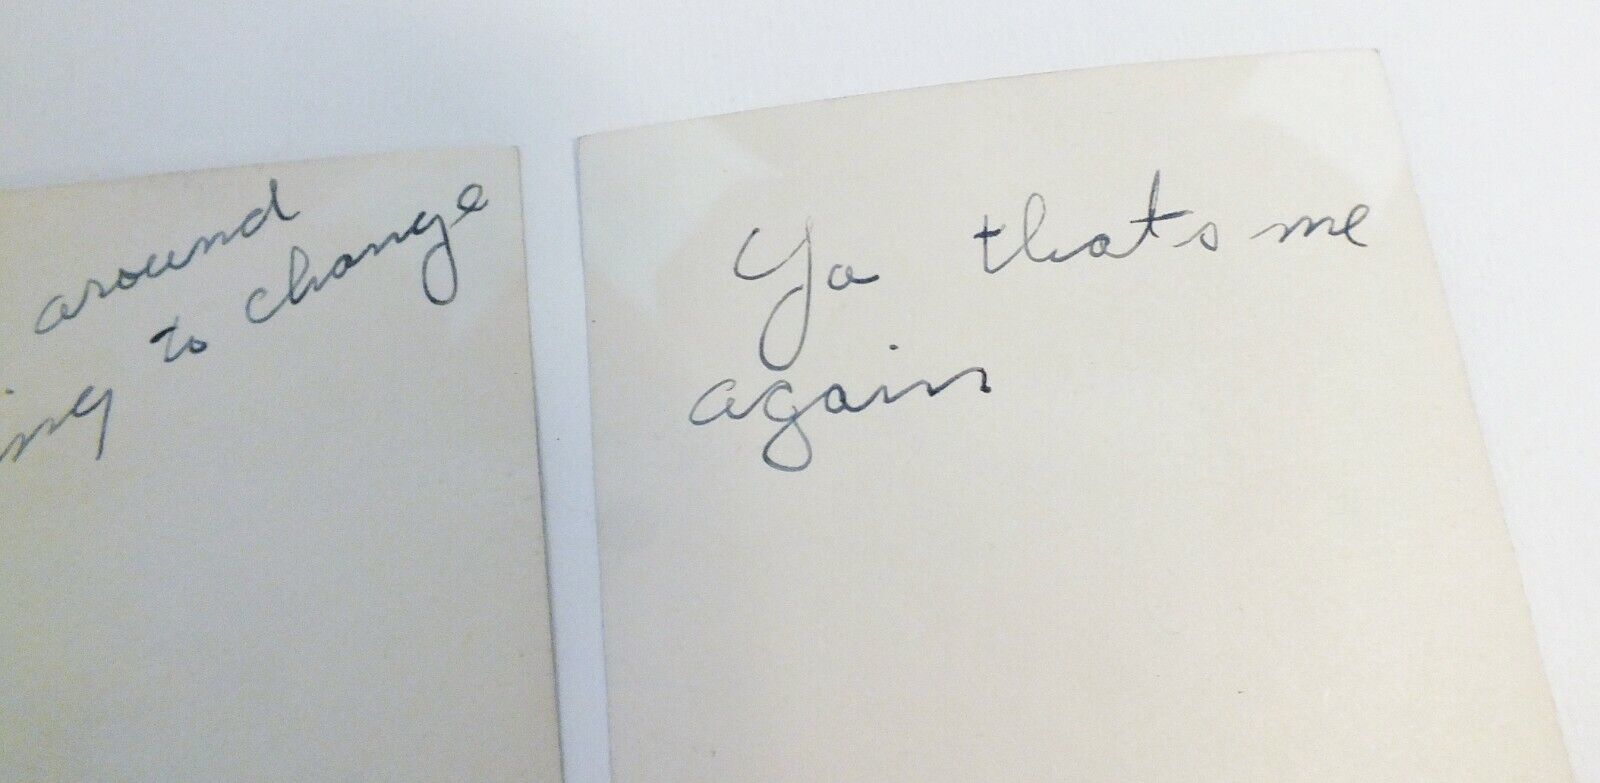 around
to change
Ya thats me
again